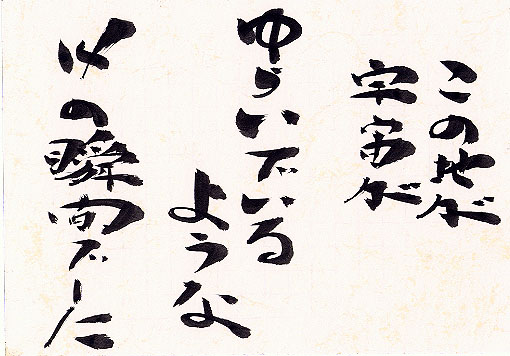 この地が
宇宙が
ゆらいでいる
ような
時の瞬間でした